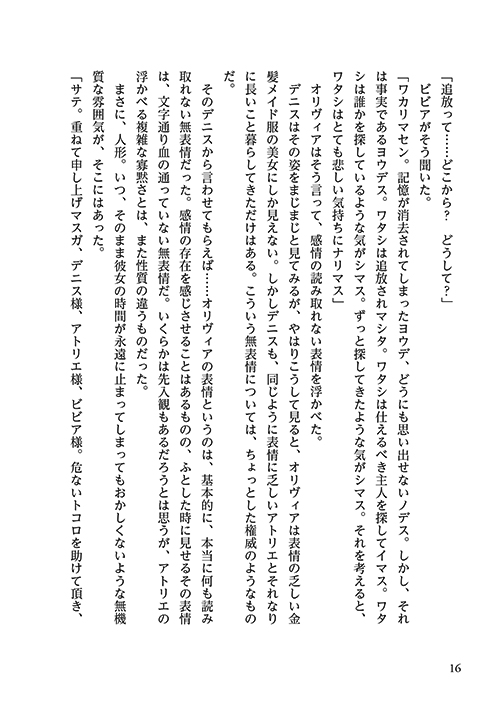 「追放って……どこから?　どうして?」
　ビビアがそう聞いた。
「ワカリマセン。記憶が消去されてしまったヨウデ、どうにも思い出せないノデス。しかし、それ
は事実であるヨウデス。ワタシは追放されマシタ。ワタシは仕えるべき主人を探してイマス。ワタ
シは誰かを探しているような気がシマス。ずっと探してきたような気がシマス。それを考えると、
ワタシはとても悲しい気持ちにナリマス」
　オリヴィアはそう言って、感情の読み取れない表情を浮かべた。
　デニスはその姿をまじまじと見てみるが、やはりこうして見ると、オリヴィアは表情の乏しい金
髪メイド服の美女にしか見えない。しかしデニスも、同じように表情に乏しいアトリエとそれなり
に長いこと暮らしてきただけはある。こういう無表情については、ちょっとした権威のようなもの
だ。
　そのデニスから言わせてもらえば……オリヴィアの表情というのは、基本的に、本当に何も読み
取れない無表情だった。感情の存在を感じさせることはあるものの、ふとした時に見せるその表情
は、文字通り血の通っていない無表情だ。いくらかは先入観もあるだろうとは思うが、アトリエの
浮かべる複雑な寡黙さとは、また性質の違うものだった。
　まさに、人形。いつ、そのまま彼女の時間が永遠に止まってしまってもおかしくないような無機
質な雰囲気が、そこにはあった。
「サテ。重ねて申し上げマスガ、デニス様、アトリエ様、ビビア様。危ないトコロを助けて頂き、
16